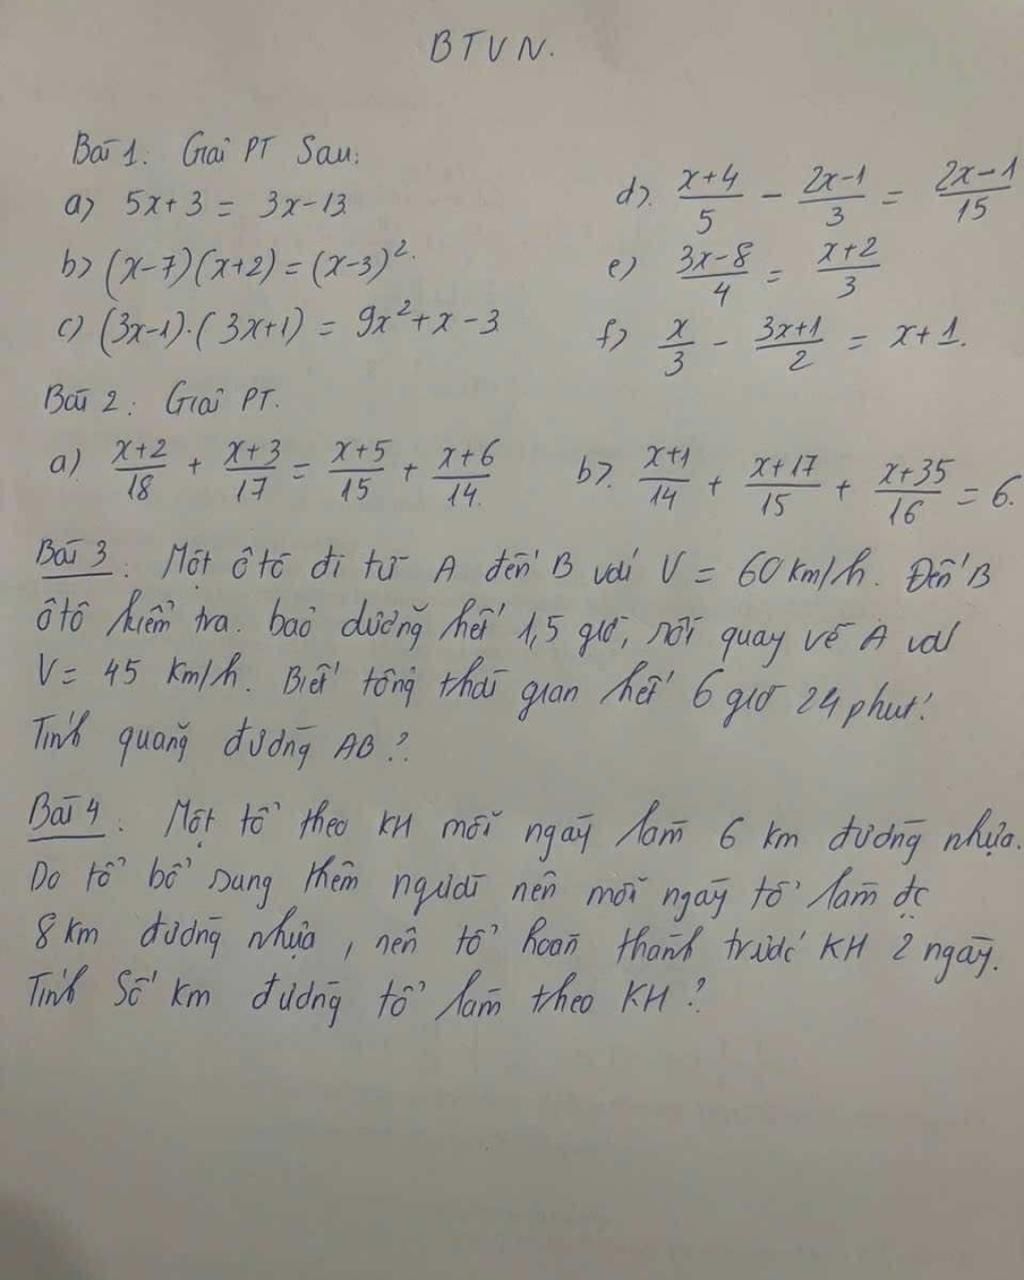 BTVN.
Bài 1: Giải PT Sau:
a) 5x+3 = 3x-13
b) (x-7)(x+2) = (x-3)².
c) (3x-1).(3x+1) = 9x²+x-3
d) (x+4)/5 - (2x-1)/3 = (2x-1)/15
e) (3x-8)/4 = (x+2)/3
f) x/3 - (3x+1)/2 = x+1.
Bài 2: Giải PT.
a) (x+2)/18 + (x+3)/17 = (x+5)/15 + (x+6)/14.
b) (x+1)/14 + (x+17)/15 + (x+35)/16 = 6.
Bài 3: Một ôtô đi từ A đến B với V = 60 km/h. Đến B
ôtô kiểm tra. bảo dưỡng hết 1,5 giờ, rồi quay về A với
V = 45 km/h. Biết tổng thời gian hết 6 giờ 24 phút.
Tính quãng đường AB?
Bài 4: Một tổ theo KH mỗi ngày làm 6 km đường nhựa.
Do tổ bổ sung thêm người nên mỗi ngày tổ làm đc
8 km đường nhựa, nên tổ hoàn thành trước KH 2 ngày.
Tính Số km đường tổ làm theo KH?